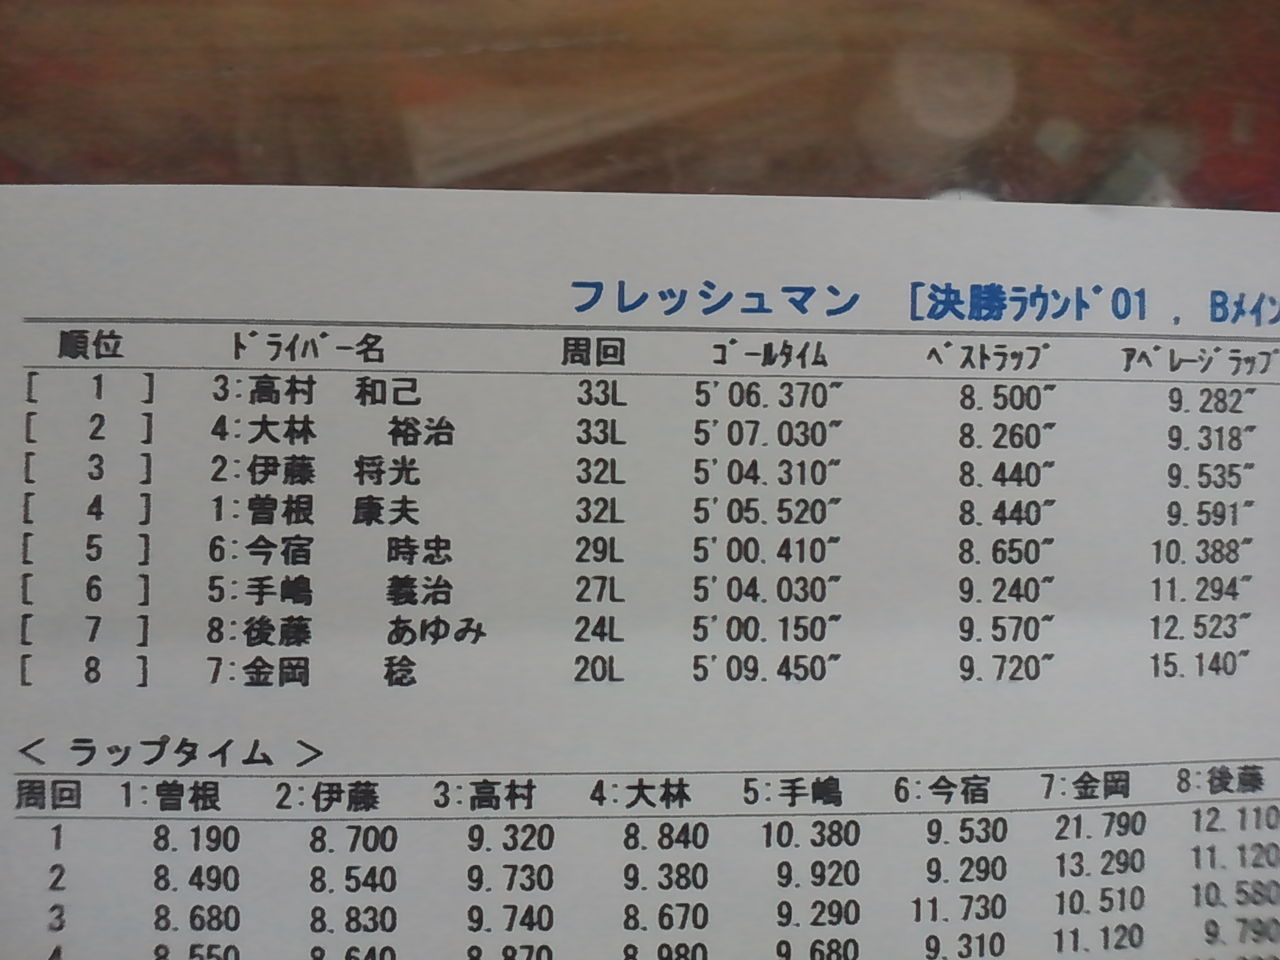 フレッシュマン [決勝ラウンド01 , Bメイン
順位 ドライバー名 周回 ゴールタイム ベストラップ アベレージラップ
[ 1 ] 3:高村 和己 33L 5'06.370″ 8.500″ 9.282″
[ 2 ] 4:大林 裕治 33L 5'07.030″ 8.260″ 9.318″
[ 3 ] 2:伊藤 将光 32L 5'04.310″ 8.440″ 9.535″
[ 4 ] 1:曽根 康夫 32L 5'05.520″ 8.440″ 9.591″
[ 5 ] 6:今宿 時忠 29L 5'00.410″ 8.650″ 10.388″
[ 6 ] 5:手嶋 義治 27L 5'04.030″ 9.240″ 11.294″
[ 7 ] 8:後藤 あゆみ 24L 5'00.150″ 9.570″ 12.523″
[ 8 ] 7:金岡 稔 20L 5'09.450″ 9.720″ 15.140″
< ラップタイム >
周回 1:曽根 2:伊藤 3:高村 4:大林 5:手嶋 6:今宿 7:金岡 8:後藤
1 8.190 8.700 9.320 8.840 10.380 9.530 21.790 12.110
2 8.490 8.540 9.730 9.380 9.920 9.290 13.290 11.120
3 8.680 8.830 9.740 8.670 9.290 11.730 10.510 10.580
4 8.550 8.640 8.870 8.980 9.680 9.310 11.120 9.790